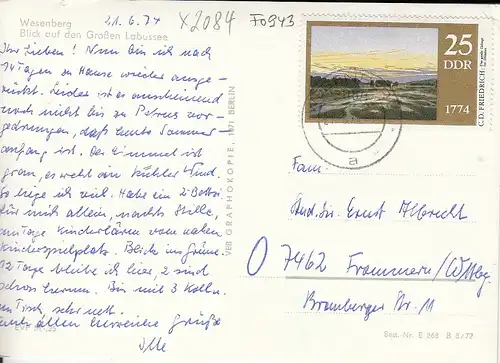 Wesenberg
Blick auf den Großen Labussee
21.6.74
X2084
F0943
Ihr Lieben! Nun bin ich nach
14 Tagen zu Hause wieder ausge-
rückt. Leider ist es anscheinend
noch nicht bis zu Petrus vor-
gedrungen, daß heute Sommer-
anfang ist. Der Himmel ist
grau, es weht ein kühler Wind.
So liege ich viel. Habe ein 2-Bettzi.
für mich allein, nachts Stille,
am Tage Kinderlärm vom nahen
Kinderspielplatz. Blick ins Grüne.
12 Tage bleibe ich hier, 2 sind
schon herum. Bin mit 3 Kolln.
am Tisch, sehr nett.
Euch allen herzliche Grüße
VEB GRAPHOKOPIE, 1071 BERLIN
25
DDR
1774
C.D. FRIEDRICH:
Fam.
Stud. Dir. Ernst Albrecht
7462 Frommern/Wttbg.
Bromberger Str. 11
Best.-Nr. E 268 B 5/72